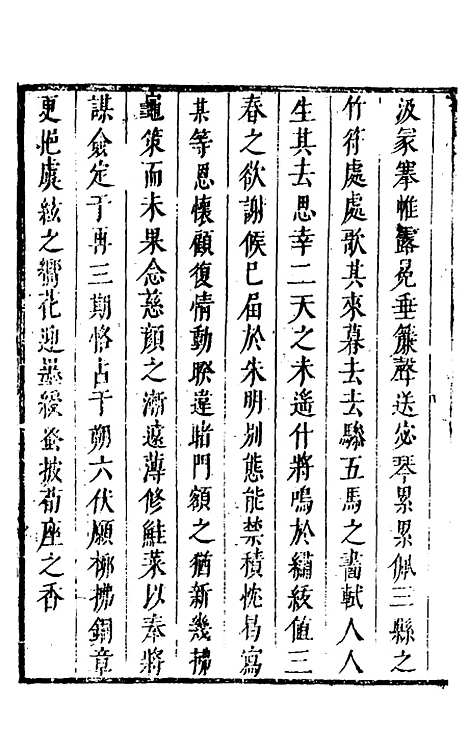 汲冢搴帷露冕垂簾聲送宓琴累累佩三縣之
竹符處處歌其來暮去去驂五馬之畵軾人人
生其去思幸二天之未遙什將鳴於繡紱值三
春之欲謝候已届於朱明别態能禁積忱曷寫
某等恩懷顧復情動暌違睹門額之猶新幾拂
龜策而未果念慈顔之漸遠薄修鮭菜以奉將
謀僉定于再三期恪占于朔六伏願栁拂銅章
更挹虞絃之響花迎墨綬爰披荀座之香